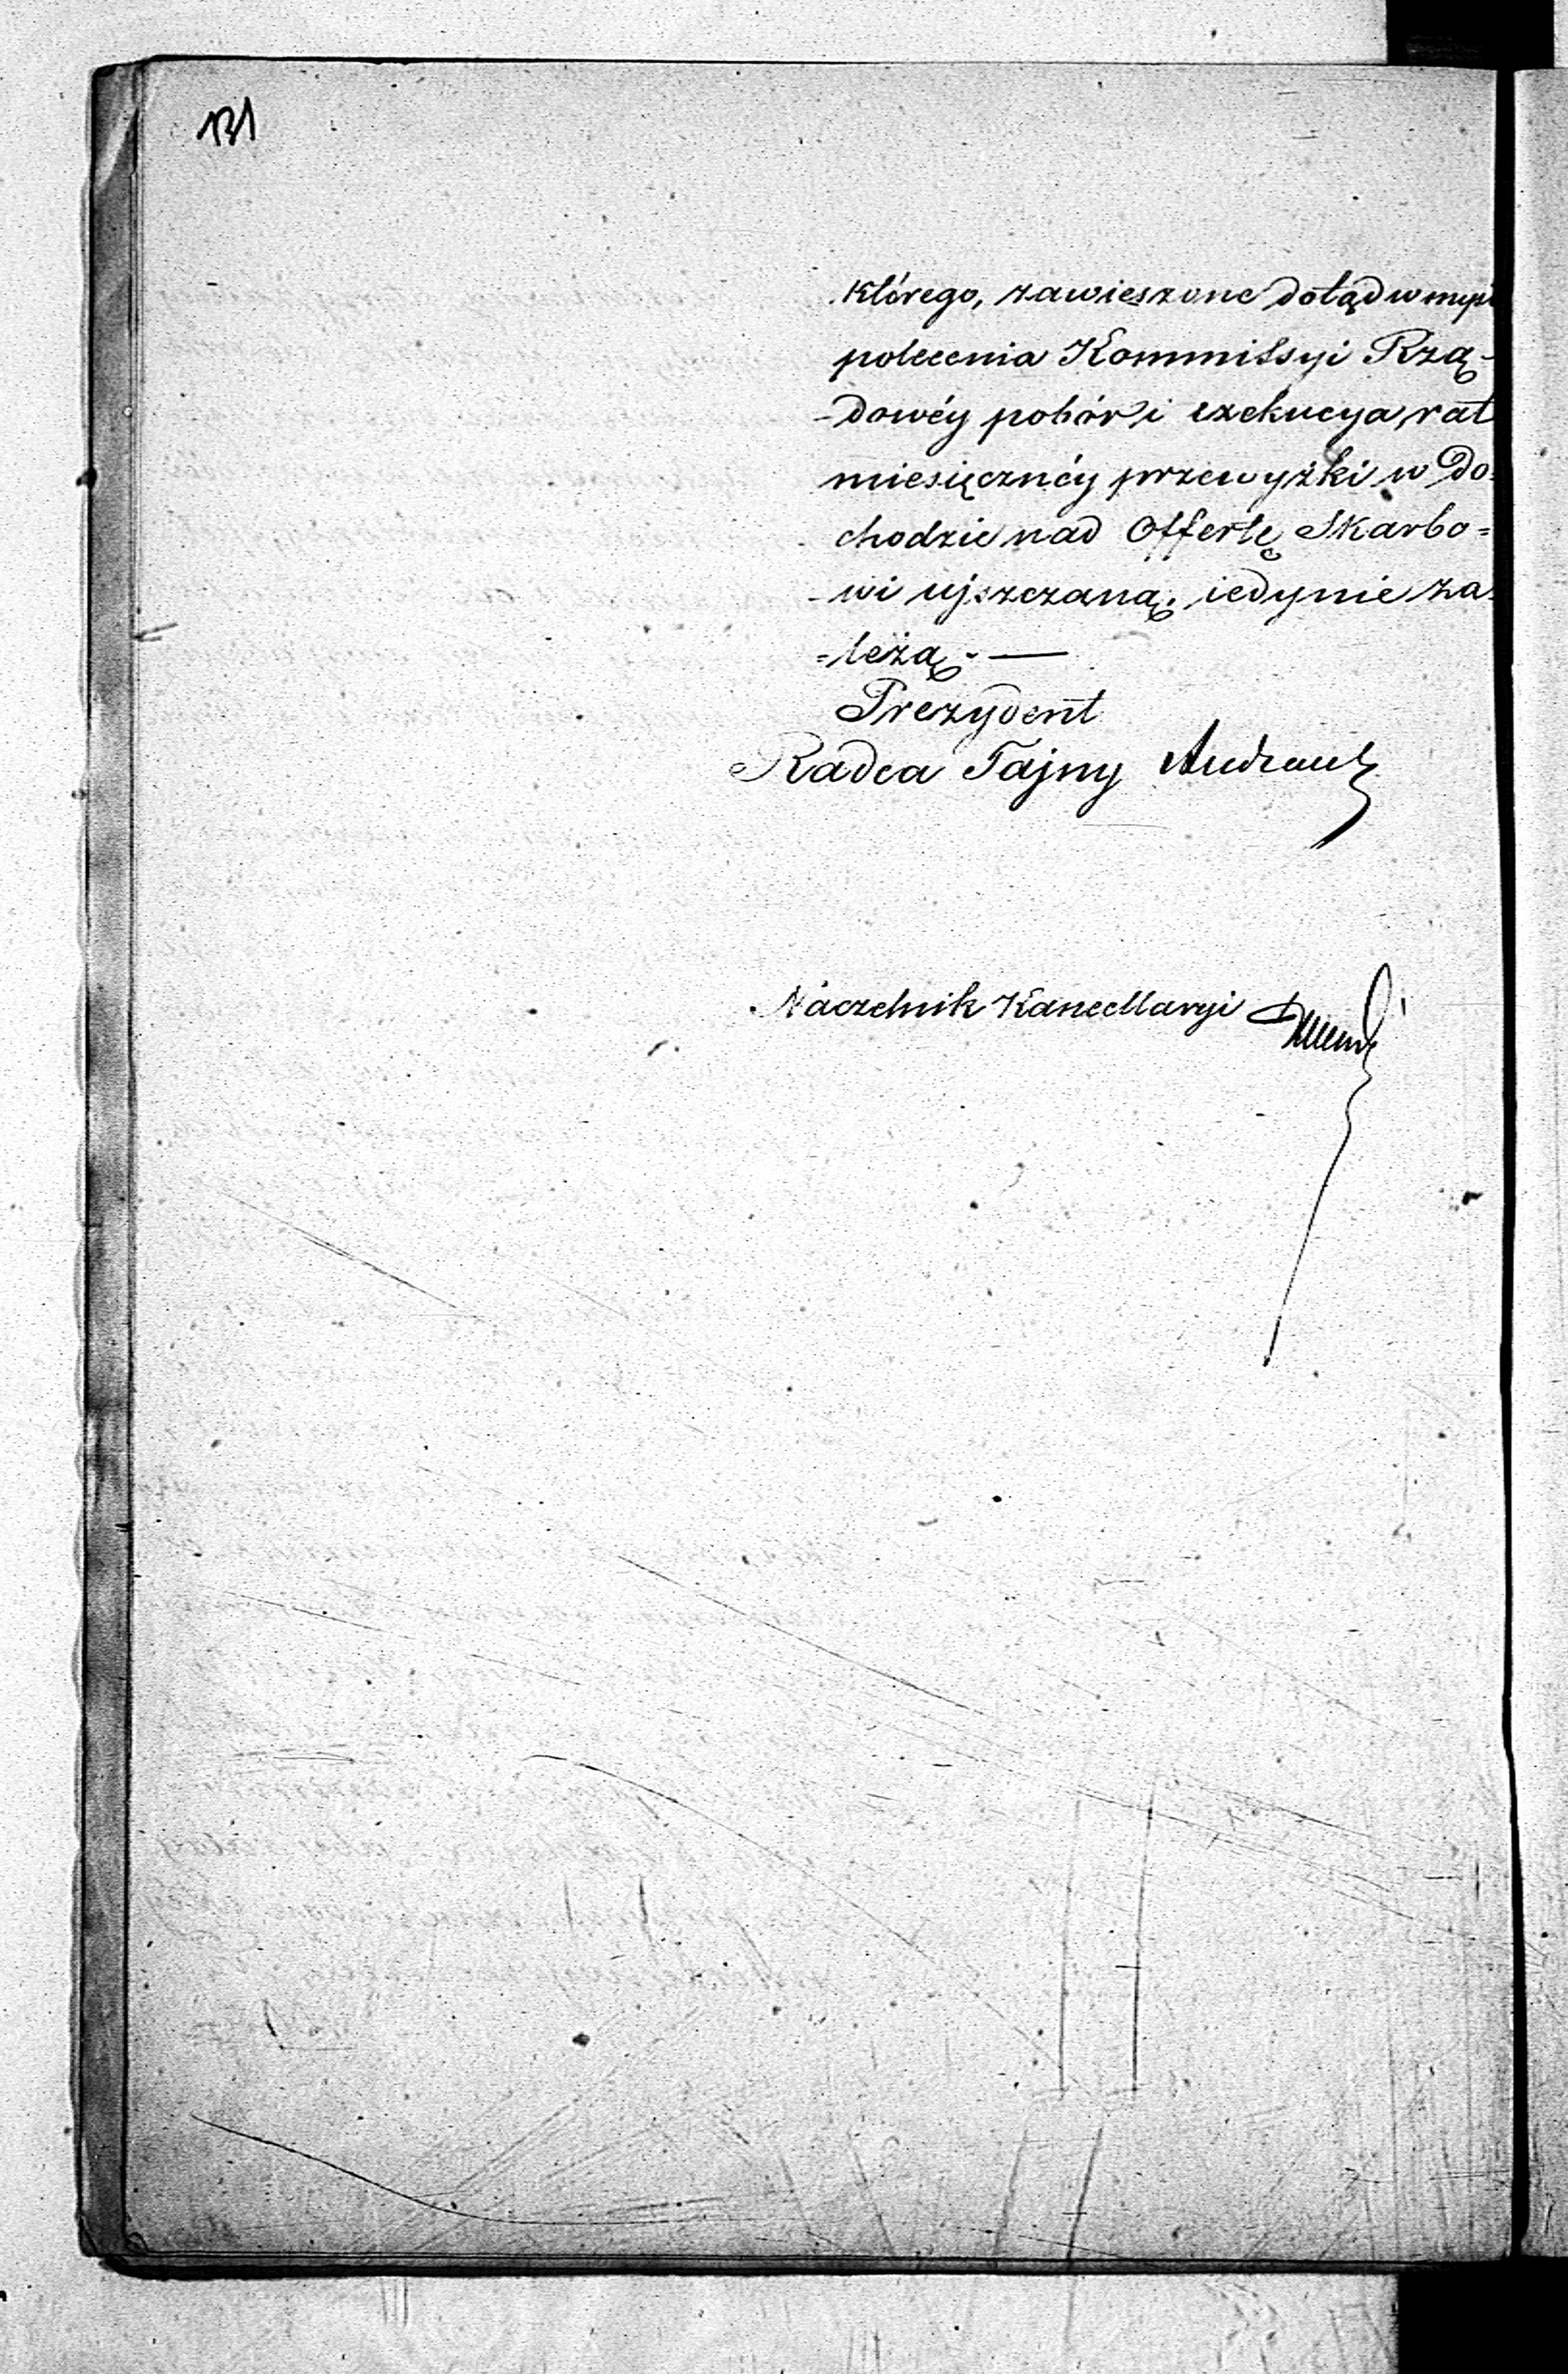 131
którego, zawieszone dotąd w myśl
polecenia Kommissyi Rzą-
-dowéy pobór i exekucya, rat
miesięcznéy przewyżki w Do-
chodzie nad Offertę Skarbo=
-wi ujszczaną, iedynie za-
=leżą. —
Prezydent
Radca Tajny Andrault
Naczelnik Kancellaryi